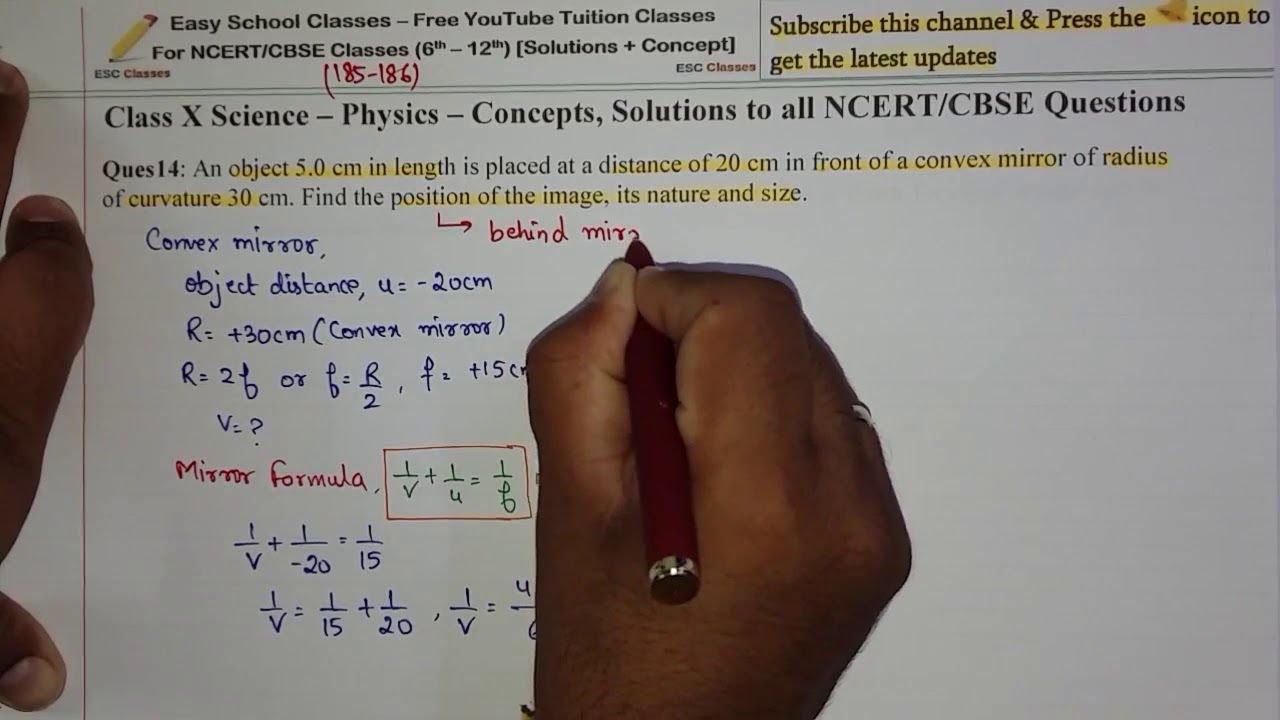 Easy School Classes – Free YouTube Tuition Classes
For NCERT/CBSE Classes (6th – 12th) [Solutions + Concept]
ESC Classes
ESC Classes
Subscribe this channel & Press the icon to
get the latest updates
(185-186)
Class X Science – Physics – Concepts, Solutions to all NCERT/CBSE Questions
Ques14: An object 5.0 cm in length is placed at a distance of 20 cm in front of a convex mirror of radius
of curvature 30 cm. Find the position of the image, its nature and size.
↳ behind mirr
Convex mirror,
object distance, u = -20cm
R = +30cm (Convex mirror)
R = 2f or f = R/2, f = +15cm
V = ?
Mirror formula, 1/v + 1/u = 1/f
1/v + 1/-20 = 1/15
1/v = 1/15 + 1/20, 1/v = 4